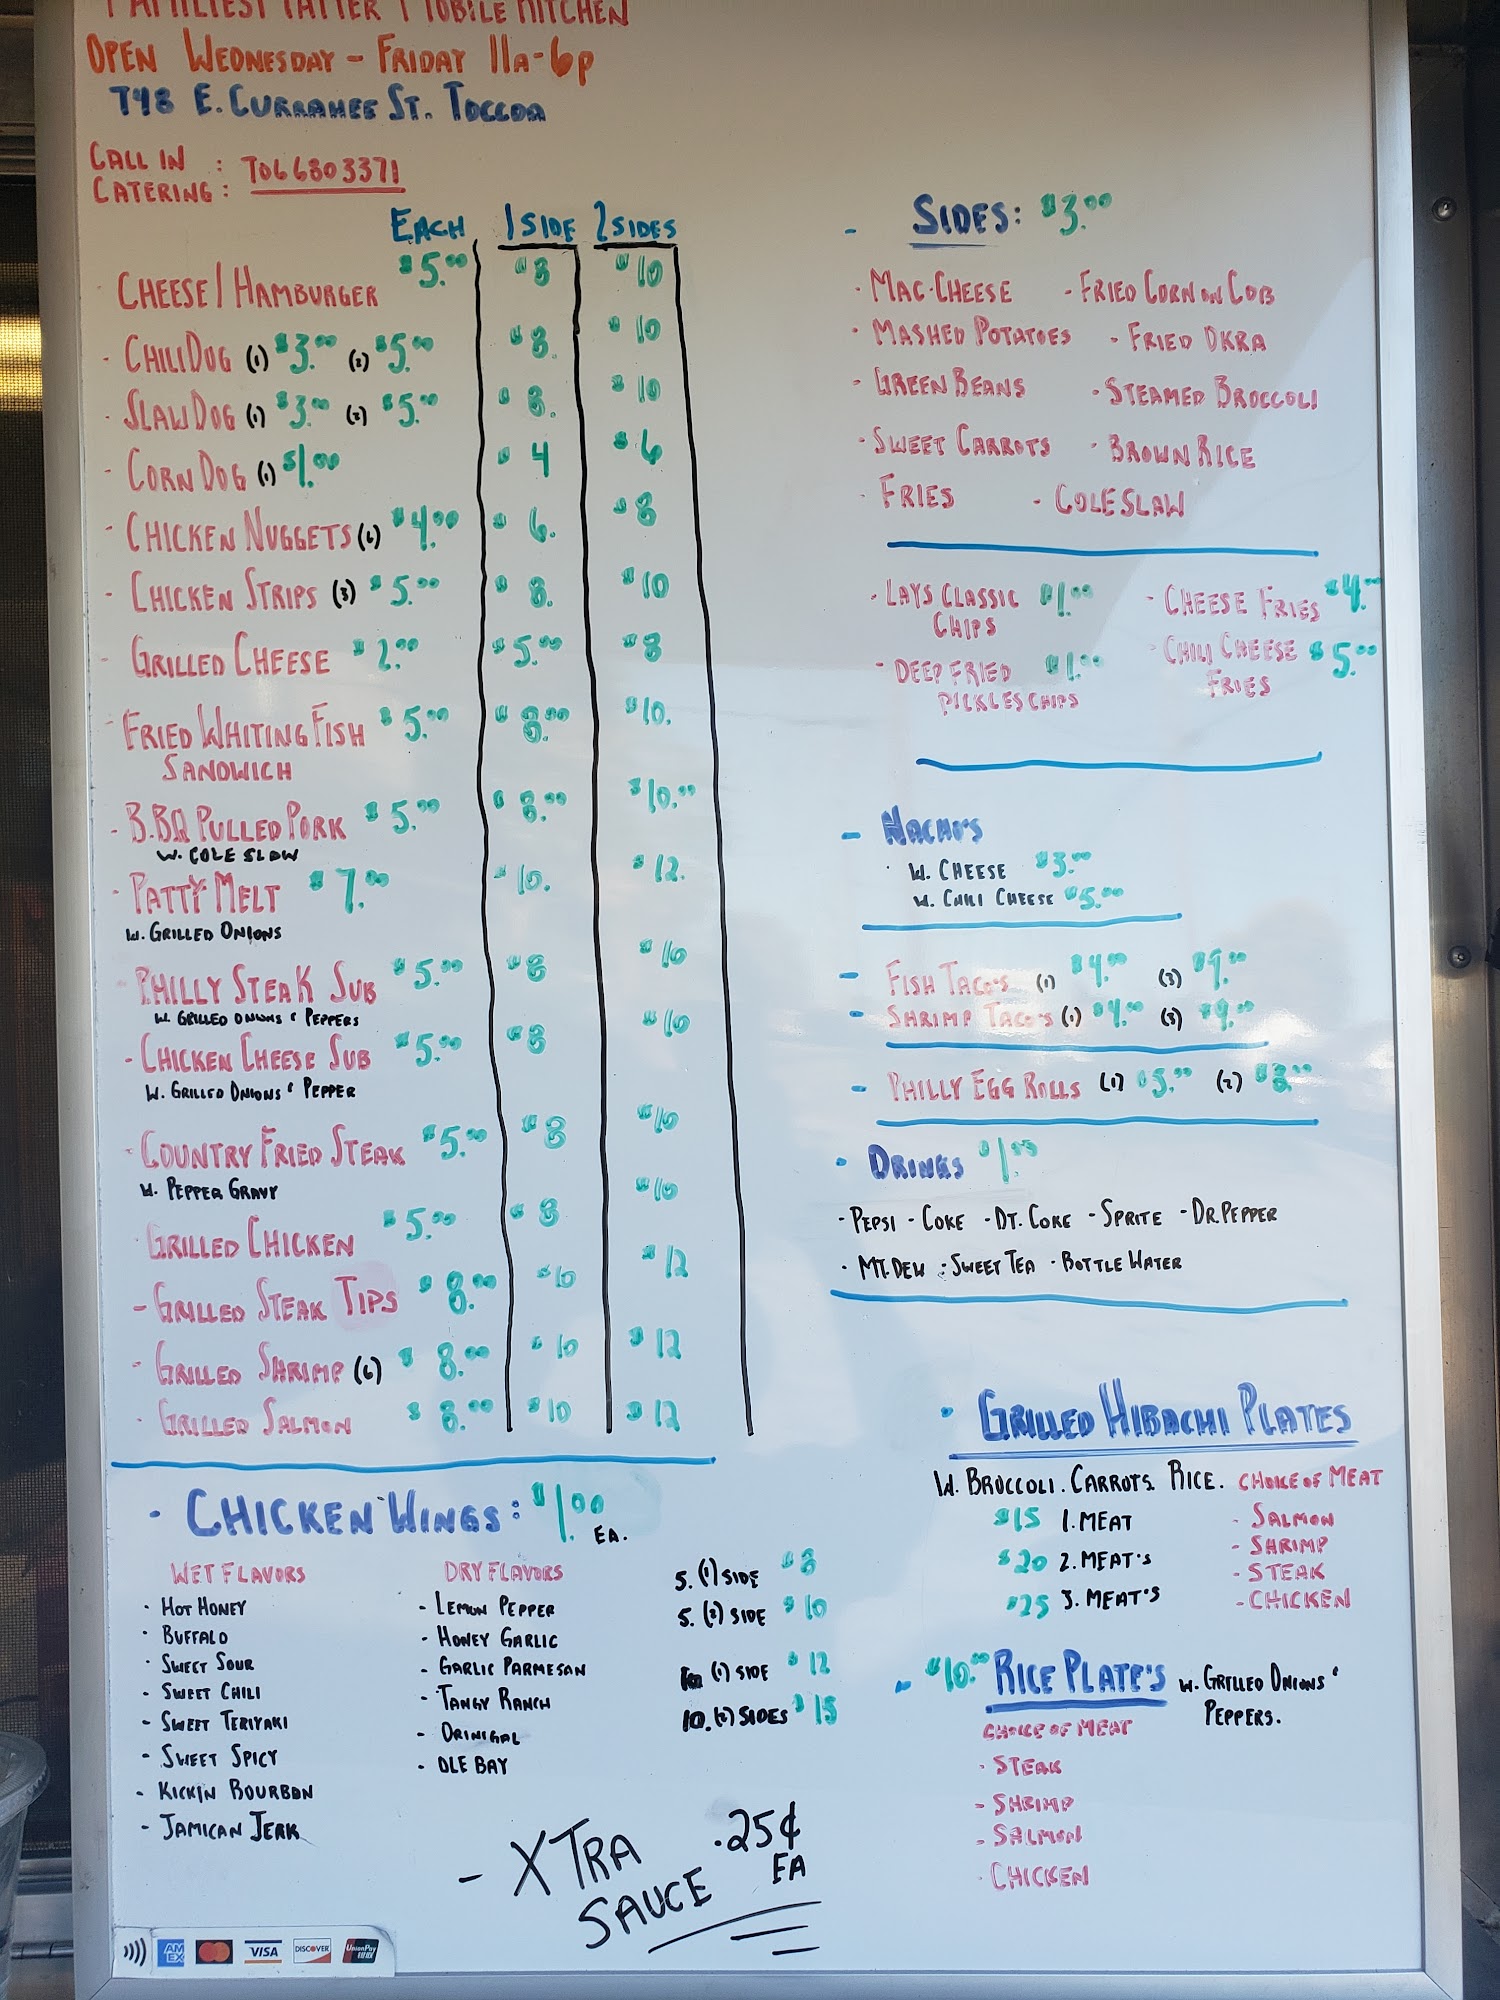 FAMILIESMATTER MOBILE KITCHEN
OPEN WEDNESDAY - FRIDAY 11A-6P
748 E. CURRAHEE ST. TOCCOA
CALL IN :
CATERING : 7066803371
EACH 1 SIDE 2 SIDES
CHEESE / HAMBURGER $5.00 $8 $10
- CHILI DOG (1) $3.00 (2) $5.00 $8. $10
- SLAW DOG (1) $3.00 (2) $5.00 $8. $10
- CORN DOG (1) $1.00 $4 $6
- CHICKEN NUGGETS (6) $4.00 $6. $8
- CHICKEN STRIPS (3) $5.00 $8. $10
- GRILLED CHEESE $2.00 $5.00 $8
- FRIED WHITING FISH $5.00 $8.00 $10.
SANDWICH
- B.BQ PULLED PORK $5.00 $8.00 $10.00
W. COLE SLAW
- PATTY MELT $7.00 $10. $12.
W. GRILLED ONIONS
- PHILLY STEAK SUB $5.00 $8 $10
W. GRILLED ONIONS & PEPPERS
- CHICKEN CHEESE SUB $5.00 $8 $10
W. GRILLED ONIONS & PEPPER
- COUNTRY FRIED STEAK $5.00 $8 $10
W. PEPPER GRAVY
- GRILLED CHICKEN $5.00 $8 $10
- GRILLED STEAK TIPS $8.00 $10 $12
- GRILLED SHRIMP (6) $8.00 $10 $12
- GRILLED SALMON $8.00 $10 $12
- CHICKEN WINGS: $1.00 EA.
WET FLAVORS
- HOT HONEY
- BUFFALO
- SWEET SOUR
- SWEET CHILI
- SWEET TERIYAKI
- SWEET SPICY
- KICKIN BOURBON
- JAMICAN JERK
DRY FLAVORS
- LEMON PEPPER
- HONEY GARLIC
- GARLIC PARMESAN
- TANGY RANCH
- ORINIGAL
- OLE BAY
5. (1) SIDE $8
5. (2) SIDE $10
10. (1) SIDE $12
10. (2) SIDES $15
- XTRA .25¢
SAUCE EA
- SIDES: $3.00
- MAC-CHEESE - FRIED CORN ON COB
- MASHED POTATOES - FRIED OKRA
- GREEN BEANS - STEAMED BROCCOLI
- SWEET CARROTS - BROWN RICE
- FRIES - COLESLAW
- LAYS CLASSIC $1.00 - CHEESE FRIES $4.00
CHIPS
- DEEP FRIED $1.00 - CHILI CHEESE $5.00
PICKLES CHIPS FRIES
- NACHO'S
- W. CHEESE $3.00
W. CHILI CHEESE $5.00
- FISH TACO'S (1) $4.00 (3) $9.00
- SHRIMP TACO'S (1) $4.00 (3) $9.00
- PHILLY EGG ROLLS (1) $5.00 (2) $8.00
- DRINKS $1.00
- PEPSI - COKE - DT. COKE - SPRITE - DR. PEPPER
- MT. DEW - SWEET TEA - BOTTLE WATER
- GRILLED HIBACHI PLATES
W. BROCCOLI. CARROTS. RICE. CHOICE OF MEAT
$15 1. MEAT - SALMON
- SHRIMP
$20 2. MEAT'S - STEAK
$25 3. MEAT'S - CHICKEN
- $10.00 RICE PLATE'S W. GRILLED ONIONS &
PEPPERS.
CHOICE OF MEAT
- STEAK
- SHRIMP
- SALMON
- CHICKEN
AM EX VISA DISCOVER UnionPay